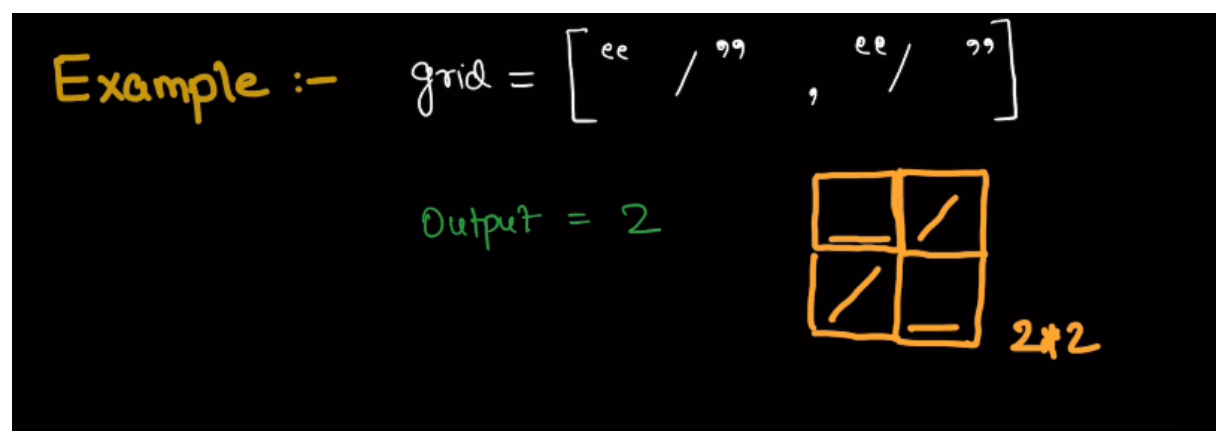 Example :- grid = [ " /" , "/ " ]
Output = 2
_ /
/ _
2*2